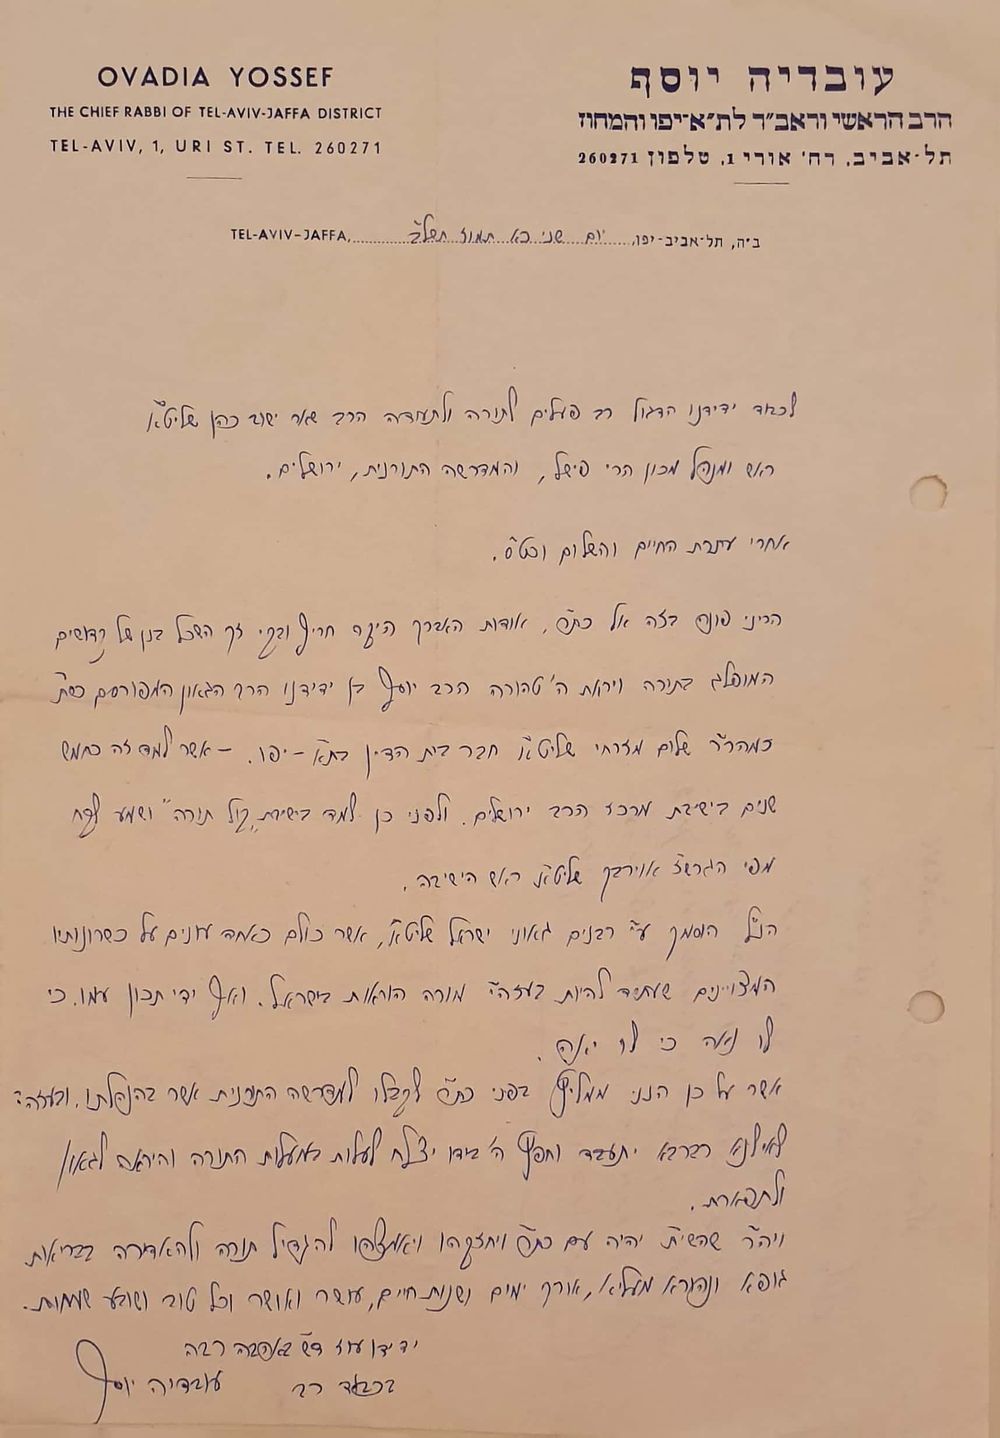 OVADIA YOSSEF
THE CHIEF RABBI OF TEL-AVIV-JAFFA DISTRICT
TEL-AVIV, 1, URI ST. TEL. 260271
עובדיה יוסף
הרב הראשי וראב״ד לת״א־יפו והמחוז
תל-אביב, רח' אורי 1, טלפון 260271
ב״ה, תל-אביב-יפו, יום שני כא תמוז תשל״ב TEL-AVIV-JAFFA,
לכבוד ידידנו הדגול רב פעלים לתורה ולתעודה הרב שאר ישוב כהן שליט״א
ראש ומנהל מכון הרי פישל, והמדרשה התורנית, ירושלים.
אחרי עתרת החיים והשלום וכט״ס.
הריני פונה בזה אל כת״ר, אודות האברך היקר חריף ובקי זך השכל בנן של קדושים
המופלג בתורה ויראת ה' טהורה הרב יוסף בן ידידנו הרב הגאון המפורסם כש״ת
כמהר״ר שלום מזרחי שליט״א חבר בית הדין בת״א - יפו. - אשר למד זה כחמש
שנים בישיבת מרכז הרב ירושלים. ולפני כן למד בישיבת „קול תורה" ושמע לקח
מפי הגרש״ז אוירבך שליט״א ראש הישיבה.
הנ״ל הוסמך ע״י רבנים גאוני ישראל שליט״א, אשר כולם כאחד עונים על כשרונותיו
המצויינים שעתיד להיות בעזה״י מורה הוראות בישראל. ואף ידי תכון עמו. כי
לו נאה כי לו יאה.
אשר על כן הנני ממליץ בפני כת״ר לקבלו למדרשה התורנית אשר בהנהלתו. ובעזה״י
לאילנא רברבא יתעבד וחפץ ה' בידו יצלח לעלות במעלות התורה והיראה לגאון
ולתפארת.
ויה״ר שהשי״ת יהיה עם כת״ר ויחזקהו ויאמצהו להגדיל תורה ולהאדירה בבריאות
גופא ונהורא מעליא, אורך ימים ושנות חיים, עושר ואושר וכל טוב ושובע שמחות.
ידידו עוז דש״ת באהבה רבה
בכבוד רב עובדיה יוסף